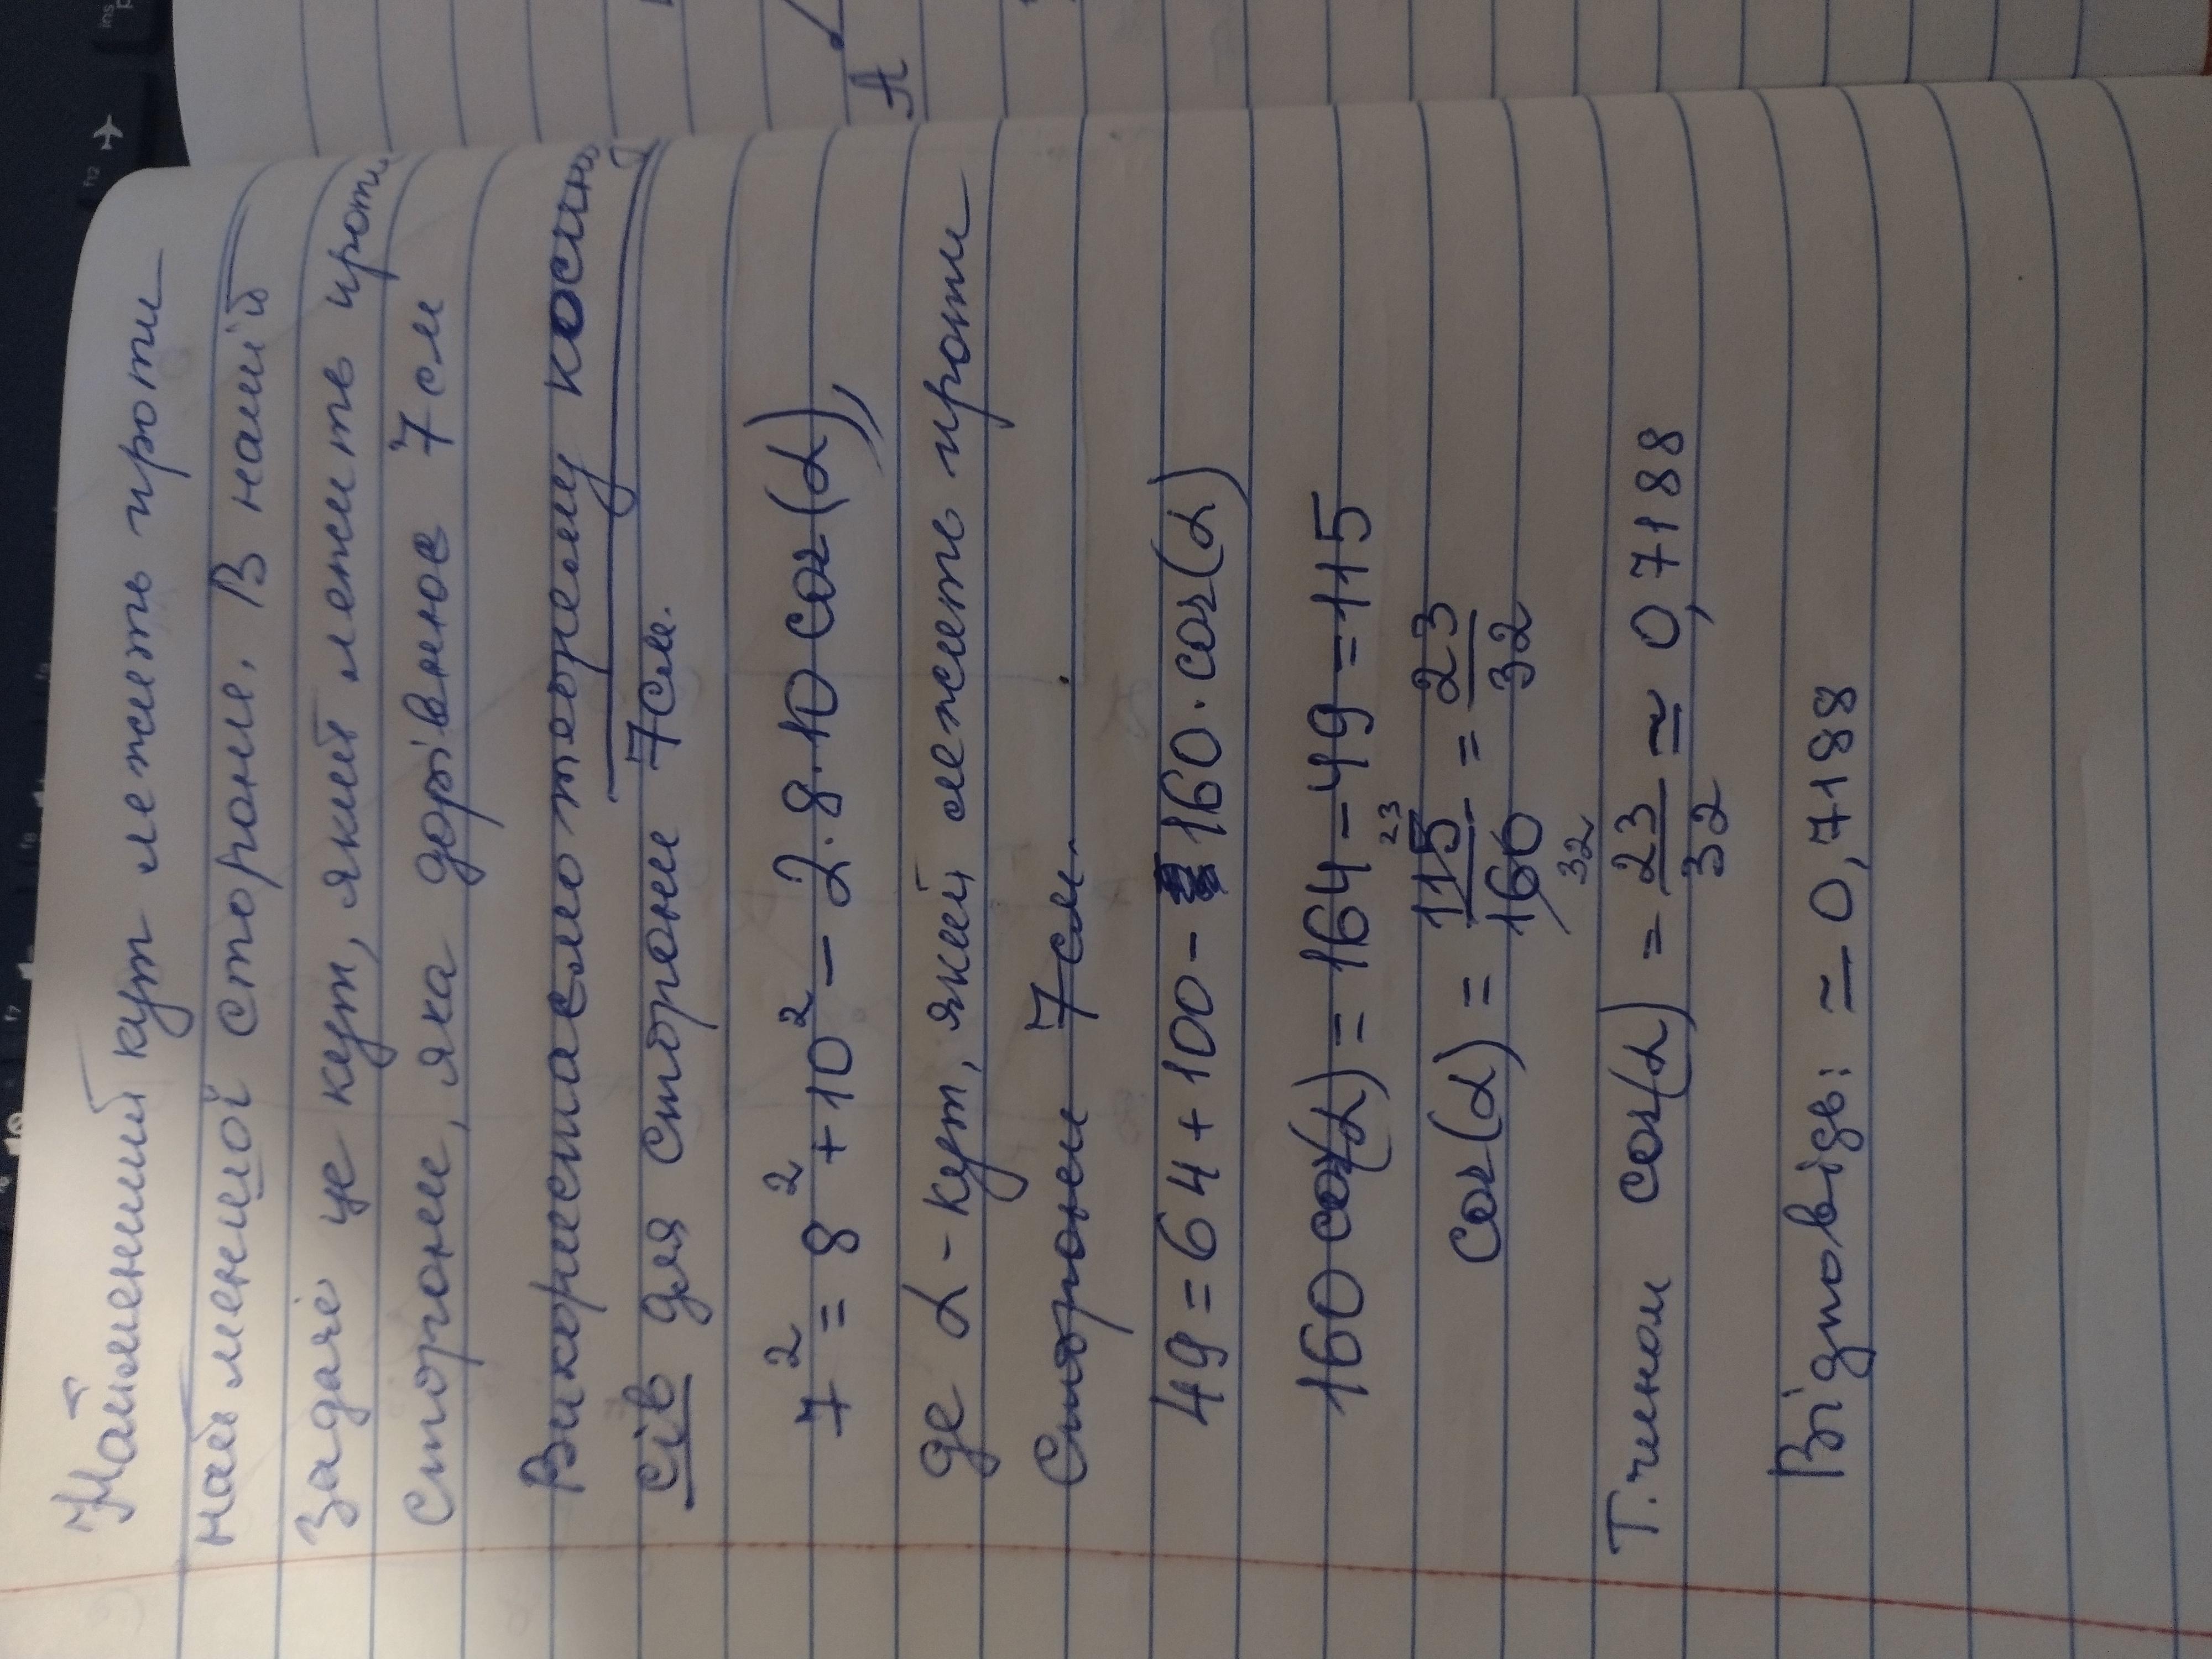 Найменший кут лежить проти
найменшої сторони. В нашій
задачі це кут, який лежить проти
сторони, яка дорівнює 7 см
Використаємо теорему косину
сів для сторони 7 см.
7² = 8² + 10² - 2·8·10 cos(α),
де α - кут, який лежить проти
сторони 7 см.
49 = 64 + 100 - 160·cos(α)
160 cos(α) = 164 - 49 = 115
cos(α) = 115/160 = 23/32
23
32
Т. чином cos(α) = 23/32 ≃ 0,7188
Відповідь: ≃ 0,7188
A